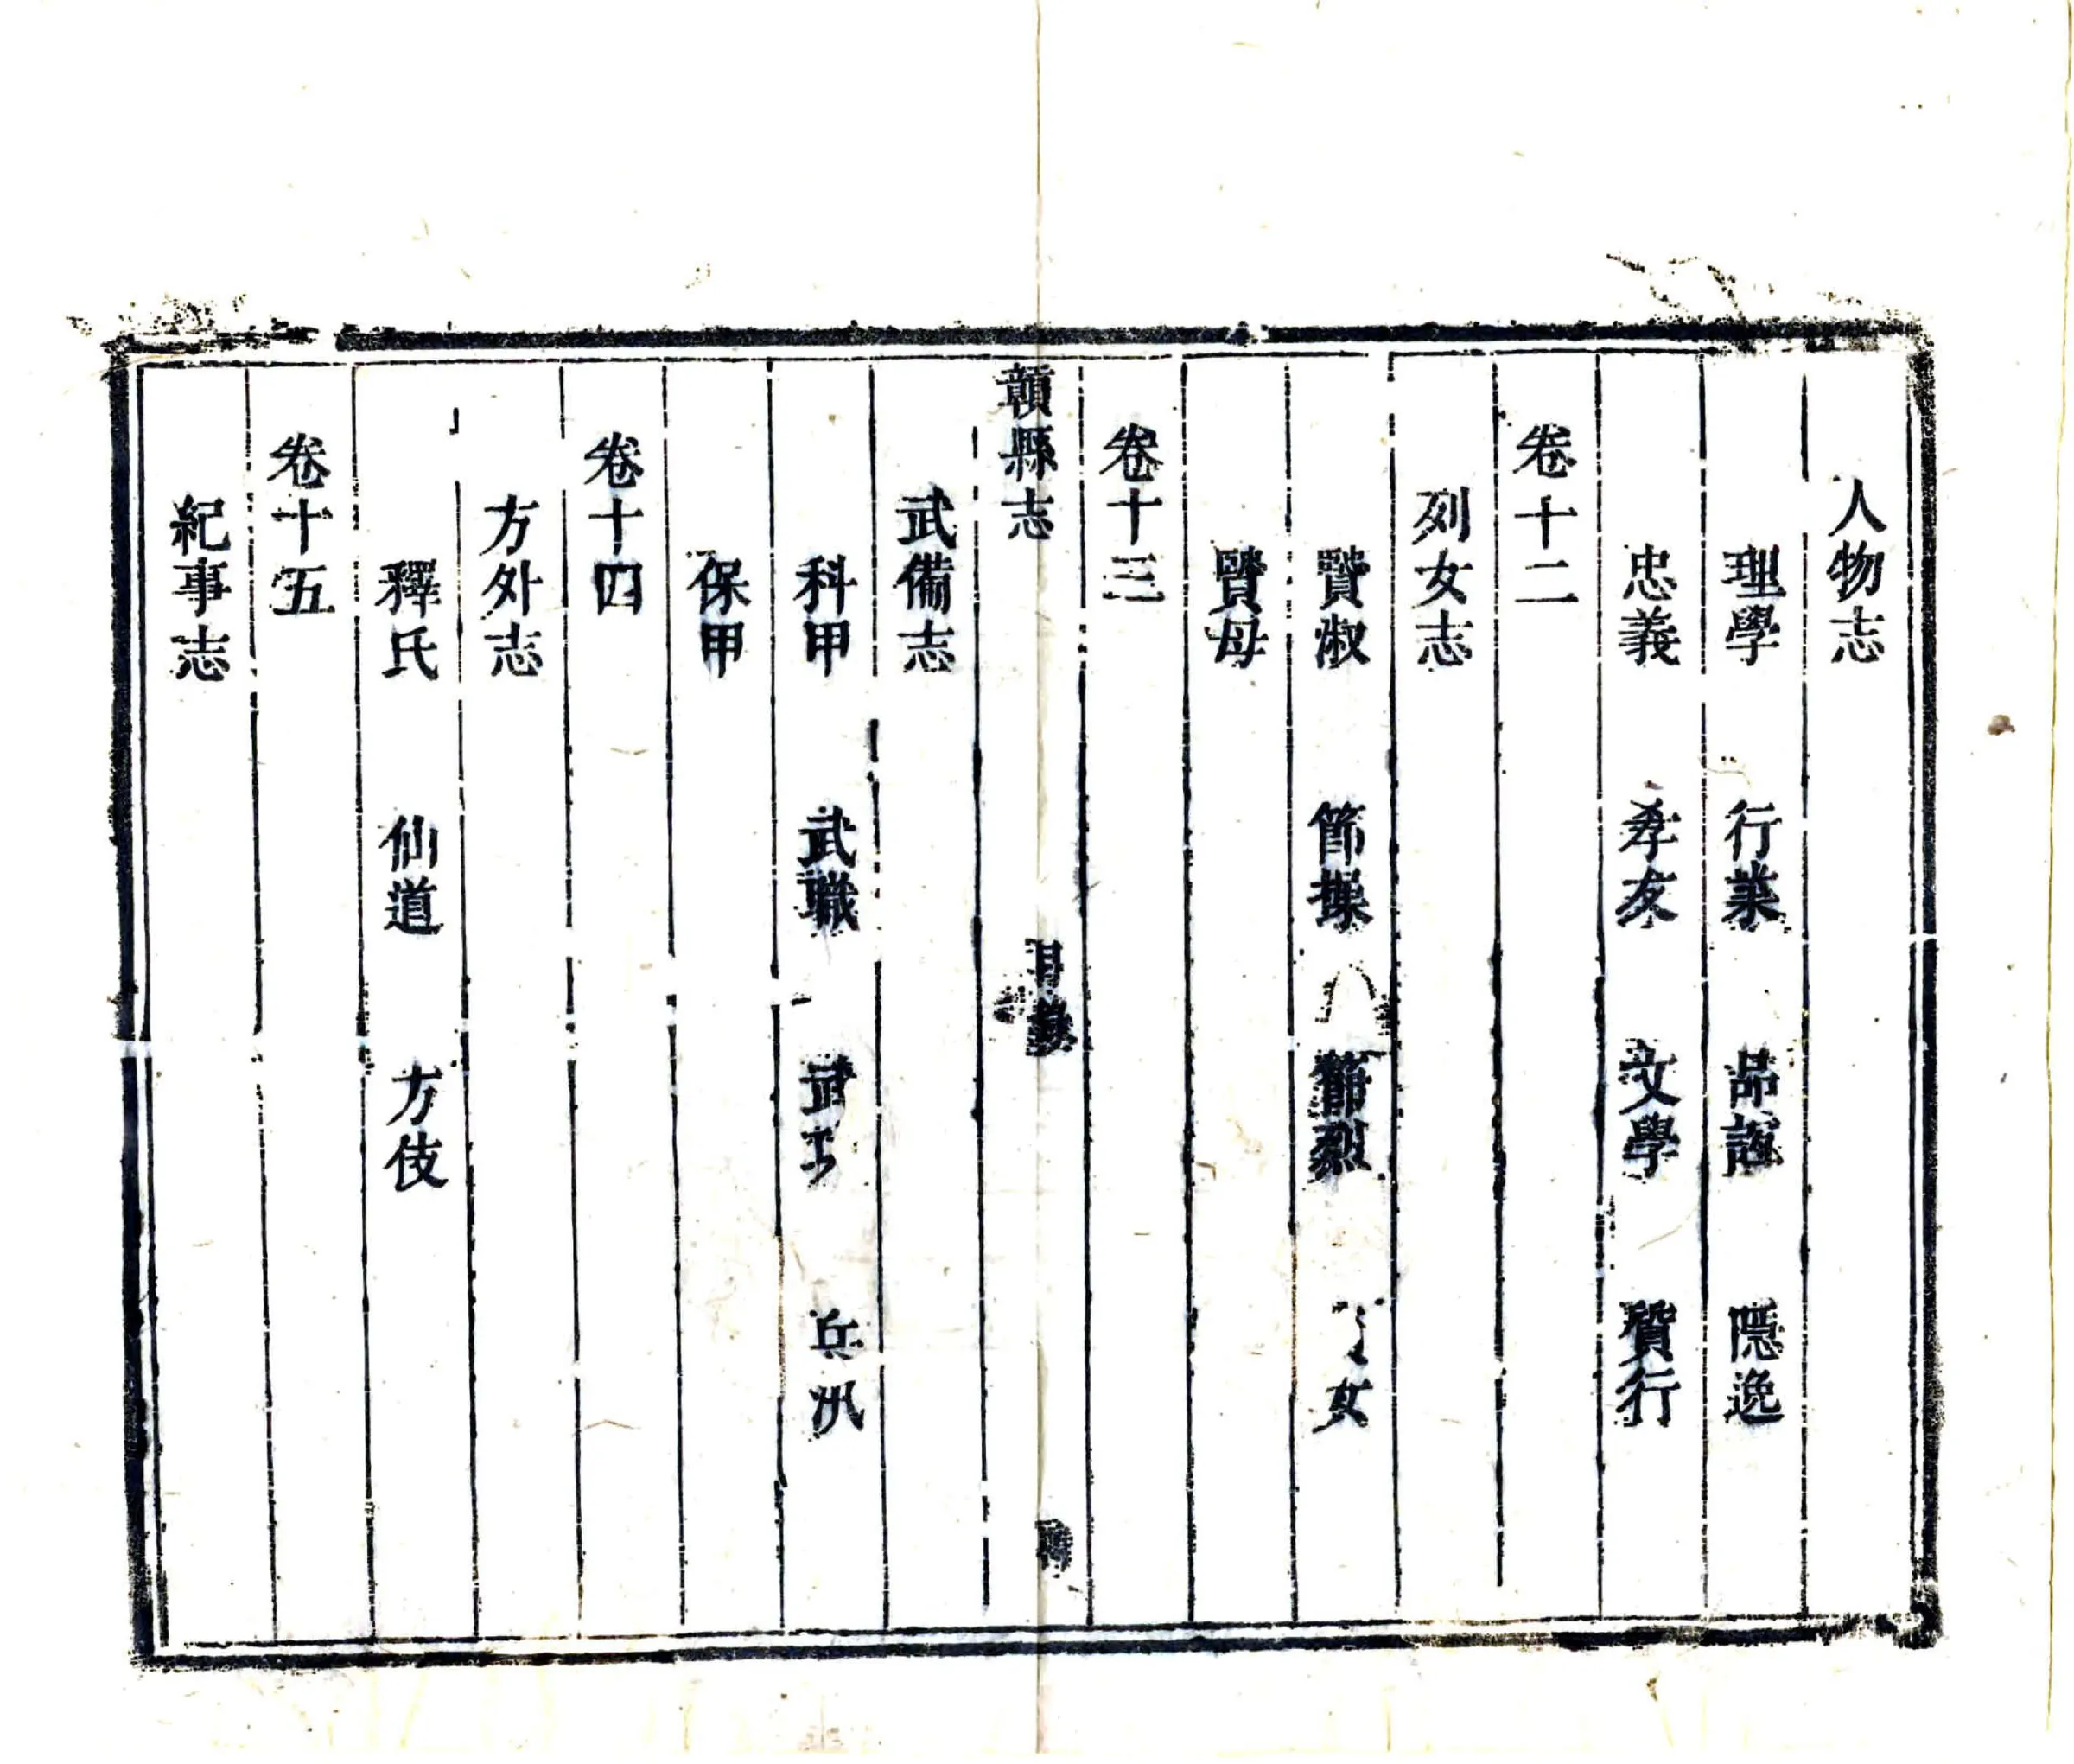 人物志
理學 行業 品誼 隱逸
忠義 孝友 文學 質行
卷十二
列女志
賢淑 節操 節烈 女
賢母
卷十三
贛縣志 目錄
武備志
科甲 武職 武 兵
保甲
卷十四
方外志
釋氏 仙道 方伎
卷十五
紀事志